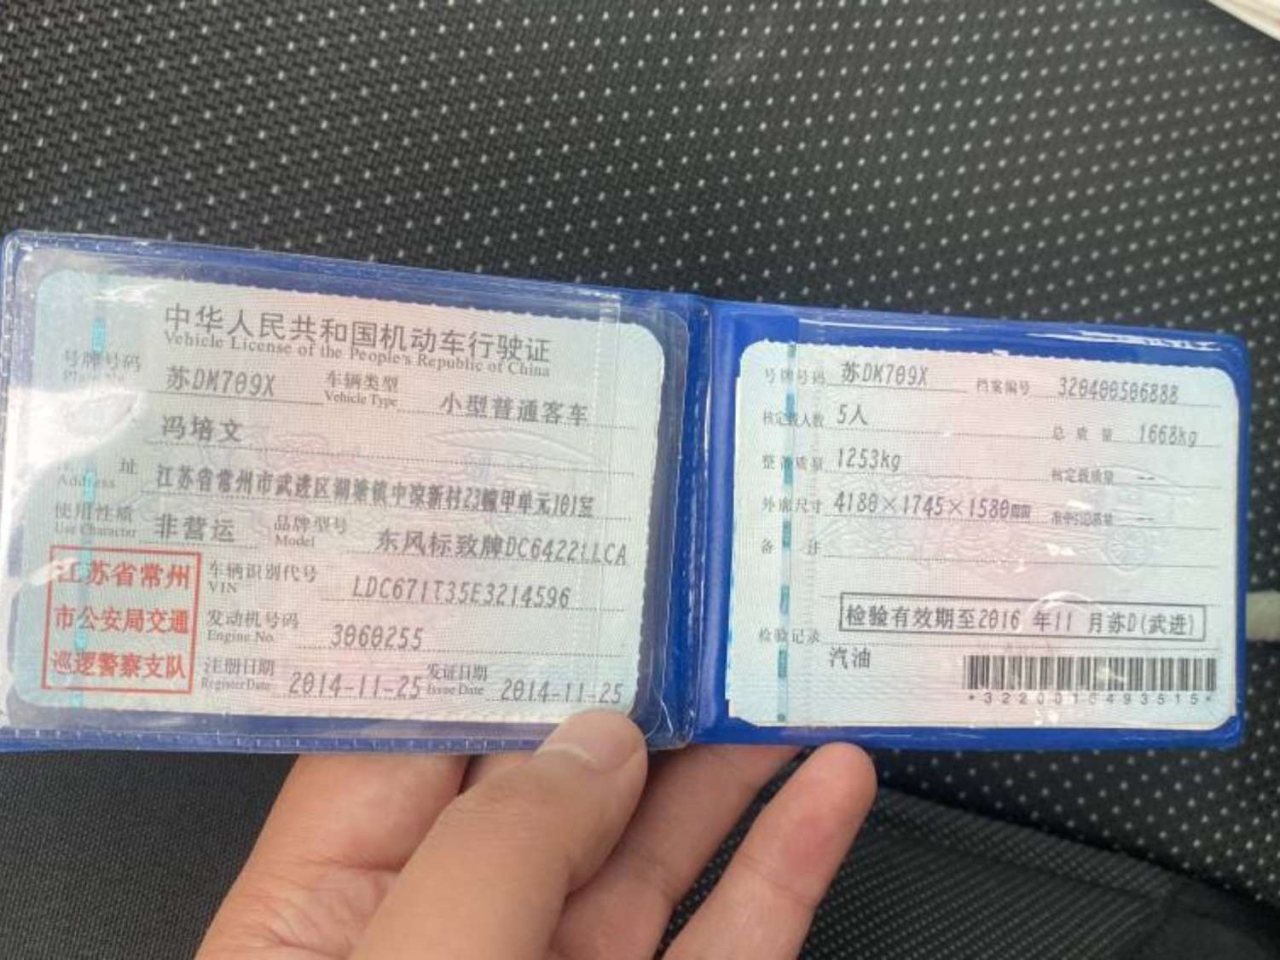 中华人民共和国机动车行驶证
Vehicle License of the People's Republic of China
号牌号码 苏DM709X 车辆类型 小型普通客车
Vehicle Type
冯培文
址 江苏省常州市武进区湖塘镇中凉新村23幢甲单元101室
Address
使用性质 非营运 品牌型号 东风标致牌DC6422LLCA
Use Character Model
江苏省常州
市公安局交通
巡逻警察支队
车辆识别代号 LDC671T35E3214596
VIN
发动机号码 3060255
Engine No.
注册日期 2014-11-25 发证日期 2014-11-25
Register Date Issue Date
号牌号码 苏DM709X 档案编号 320400506888
核定载人数 5人 总质量 1668kg
整备质量 1253kg 核定载质量 --
外廓尺寸 4180×1745×1580mm 准牵引总质量 --
备注
检验有效期至2016 年11 月苏D(武进)
检验记录
汽油
*3220010493515*